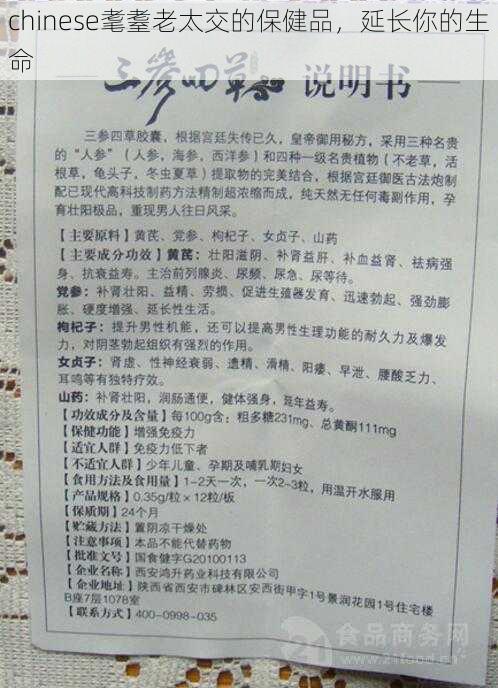 chinese耄耋老太交的保健品，延长你的生
命
三参四草 说明书
三参四草胶囊，根据宫廷失传已久，皇帝御用秘方，采用三种名贵
的“人参”（人参，海参，西洋参）和四种一级名贵植物（不老草，活
根草，龟头子，冬虫夏草）提取物的完美结合，根据宫廷御医古法炮制
配已现代高科技制药方法精制超浓缩而成，纯天然无任何毒副作用，孕
育壮阳极品，重现男人往日风采。
【主要原料】黄芪、党参、枸杞子、女贞子、山药
【主要成分功效】黄芪：壮阳滋阴、补肾益肝、补血益肾、祛病强
身、抗衰益寿。主治前列腺炎、尿频、尿急、尿等待。
党参：补肾壮阳、益精、劳损、促进生殖器发育、迅速勃起、强劲膨
胀、硬度增强、延长性生活。
枸杞子：提升男性机能，还可以提高男性生理功能的耐久力及爆发
力，对阴茎勃起组织有强烈的作用。
女贞子：肾虚、性神经衰弱、遗精、滑精、阳痿、早泄、腰酸乏力、
耳鸣等有独特疗效。
山药：补肾壮阳，润肠通便，健体强身，延年益寿。
【功效成分及含量】每100g含：粗多糖231mg、总黄酮111mg
【保健功能】增强免疫力
【适宜人群】免疫力低下者
【不适宜人群】少年儿童、孕期及哺乳期妇女
【食用方法及食用量】1-2天一次，一次2-3粒，用温开水服用
【产品规格】0.35g/粒×12粒/板
【保质期】24个月
【贮藏方法】置阴凉干燥处
【注意事项】本品不能代替药物
【批准文号】国食健字G20100113
【企业名称】西安鸿升药业科技有限公司
【企业地址】陕西省西安市碑林区安西街甲字1号景润花园1号住宅楼
B座7层1078室
【联系方式】400-0998-035
食品商务网
21food.cn